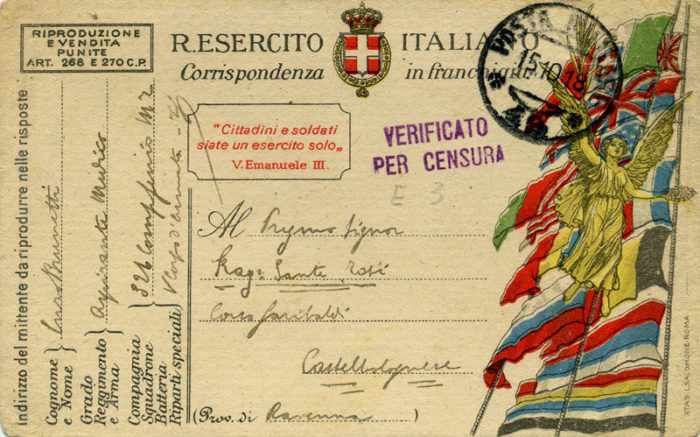 RIPRODUZIONE
E VENDITA
PUNITE
ART. 268 E 270 C.P.
R. ESERCITO ITALIANO
Corrispondenza in franchigia
POSTA
15.10.18
"Cittadini e soldati
siate un esercito solo„
V. Emanuele III.
VERIFICATO
PER CENSURA
E 3
Al Pregmo Signor
Rag: Sante
Corso Garibaldi
Castelbolognese
(Prov. di Ravenna)
indirizzo del mittente da riprodurre nelle risposte
Cognome
e Nome
Grado
Reggimento
e Arma
Aspirante Medico
Compagnia
Squadrone
Batteria
Riparti speciali
STAB. I. SALOMONE-ROMA